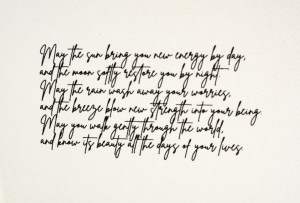 May the sun bring you new energy by day,
and the moon softly restore you by night.
May the rain wash away your worries,
and the breeze blow new strength into your being.
May you walk gently through the world,
and know its beauty all the days of your lives.